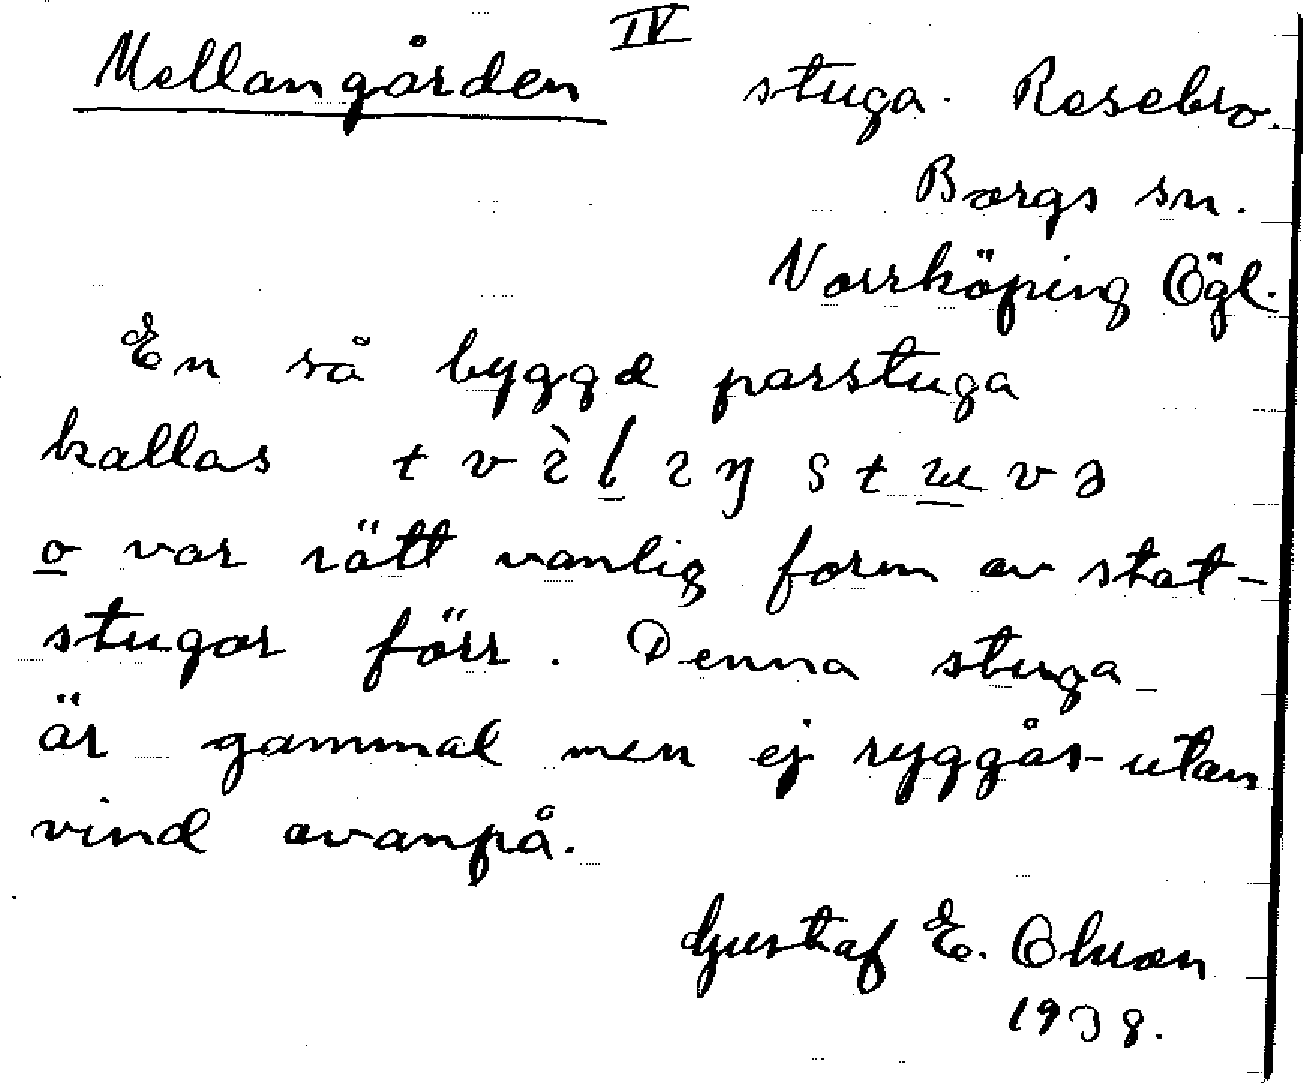 IV
Mellangården stuga. Rosebro.
Borgs sn.
Norrköping Ögl.
En så byggd parstuga
kallas
o var rätt vanlig form av stat-
stugor förr. Denna stuga
är gammal men ej ryggås- utan
vind ovanpå.
Gustaf E. Olsson
1938.